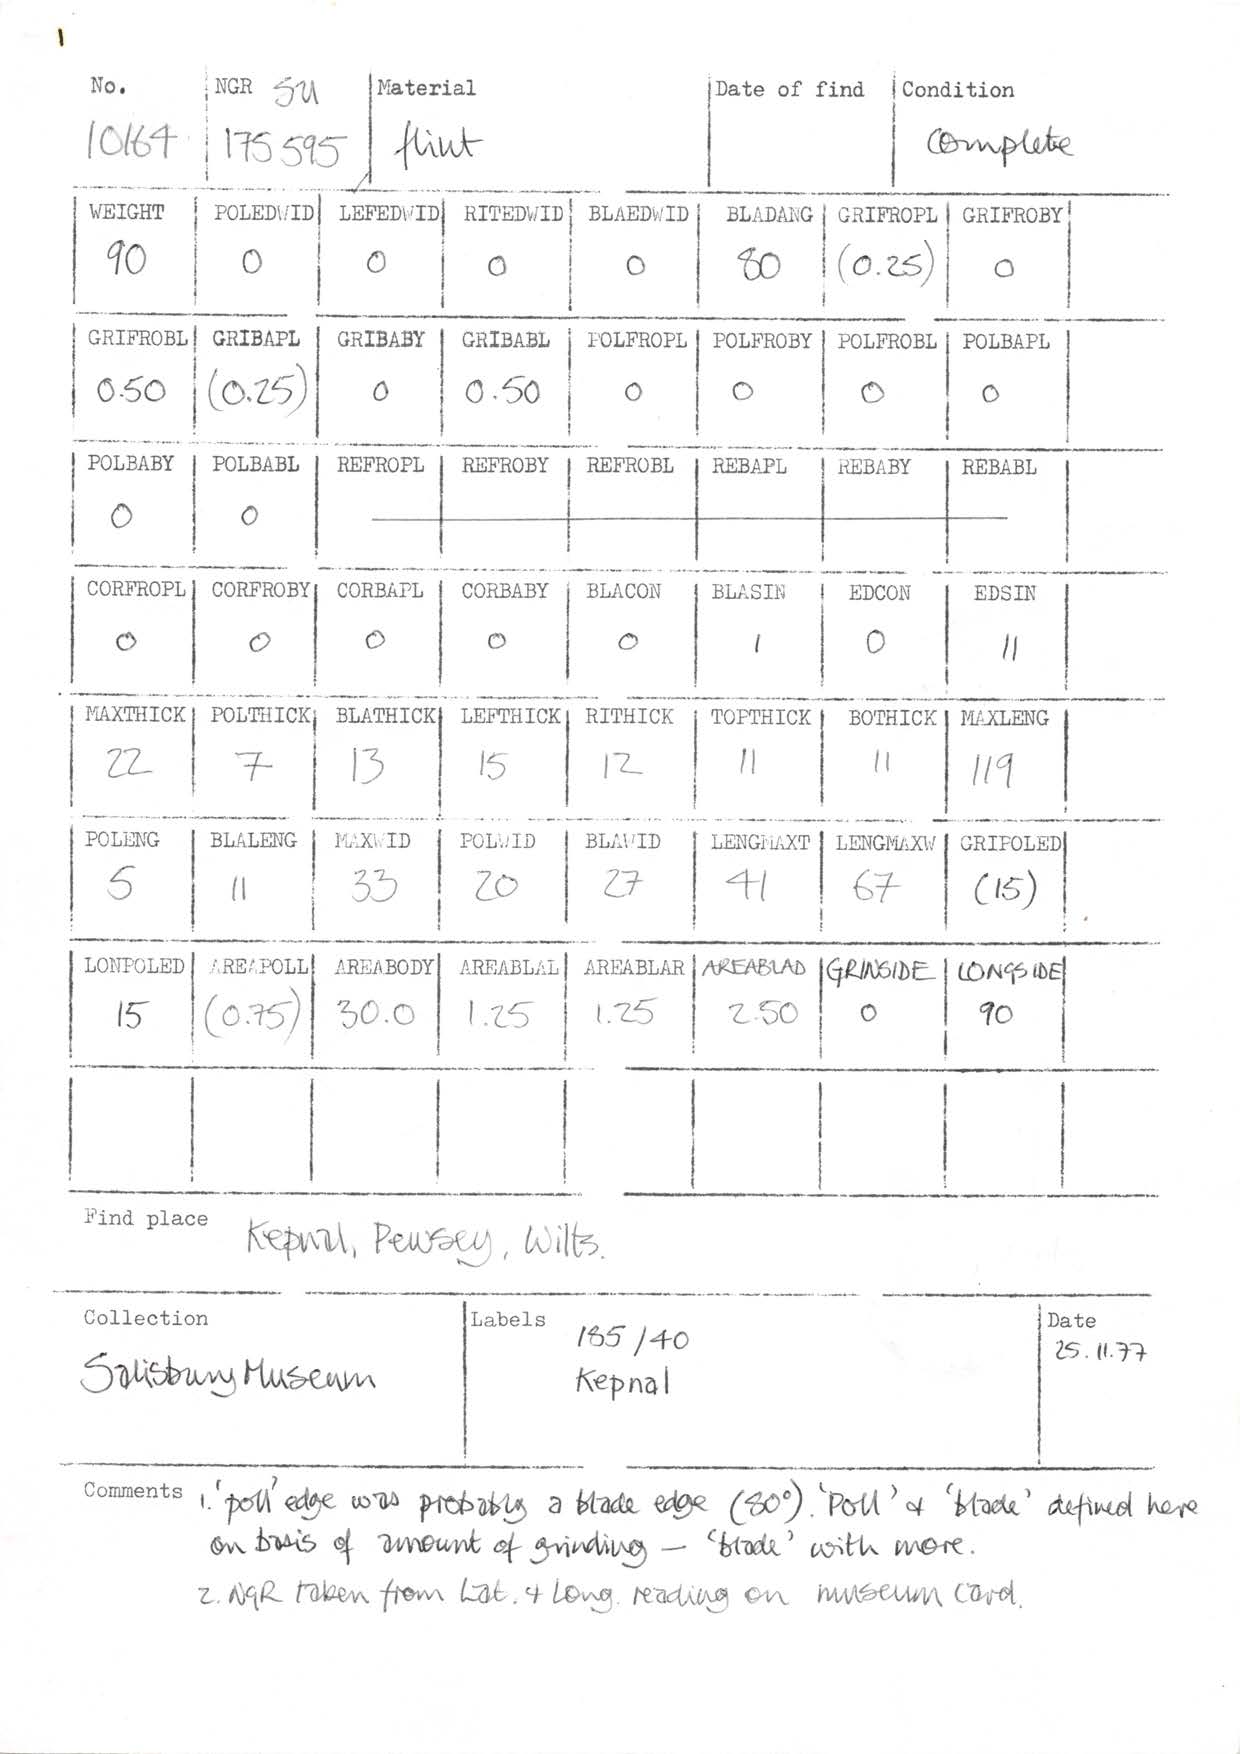 1
No. NGR SU Material Date of find Condition
10164 175 595 flint complete
WEIGHT POLEDWID LEFEDWID RITEDWID BLAEDWID BLADANG GRIFROPL GRIFROBY
90 0 0 0 0 80 (0.25) 0
GRIFROBL GRIBAPL GRIBABY GRIBABL POLFROPL POLFROBY POLFROBL POLBAPL
0.50 (0.25) 0 0.50 0 0 0 0
POLBABY POLBABL REFROPL REFROBY REFROBL REBAPL REBABY REBABL
0 0
CORFROPL CORFROBY CORBAPL CORBABY BLACON BLASIN EDCON EDSIN
0 0 0 0 0 1 0 11
MAXTHICK POLTHICK BLATHICK LEFTHICK RITHICK TOPTHICK BOTHICK MAXLENG
22 7 13 15 12 11 11 119
POLENG BLALENG MAXWID POLWID BLAWID LENGMAXT LENGMAXW GRIPOLED
5 11 33 20 27 41 67 (15)
LONPOLED AREAPOLL AREABODY AREABLAL AREABLAR AREABLAD GRINSIDE LONGSIDE
15 (0.75) 30.0 1.25 1.25 2.50 0 90
Find place Kepnal, Pewsey, Wilts.
Collection Labels Date
185/40 25.11.77
Salisbury Museum Kepnal
Comments 1. 'poll' edge was probably a blade edge (80°). 'Poll' & 'blade' defined here
on basis of amount of grinding – 'blade' with more.
2. NGR taken from Lat. & Long. reading on museum card.